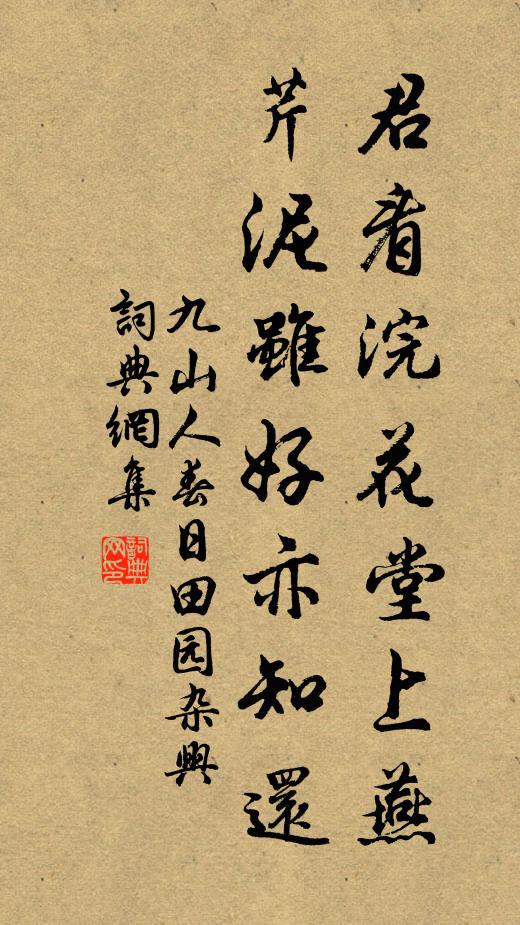 君看浣花堂上燕
芹泥雖好亦知還
九山人春日田园杂興
詞典網集
詞典
网印